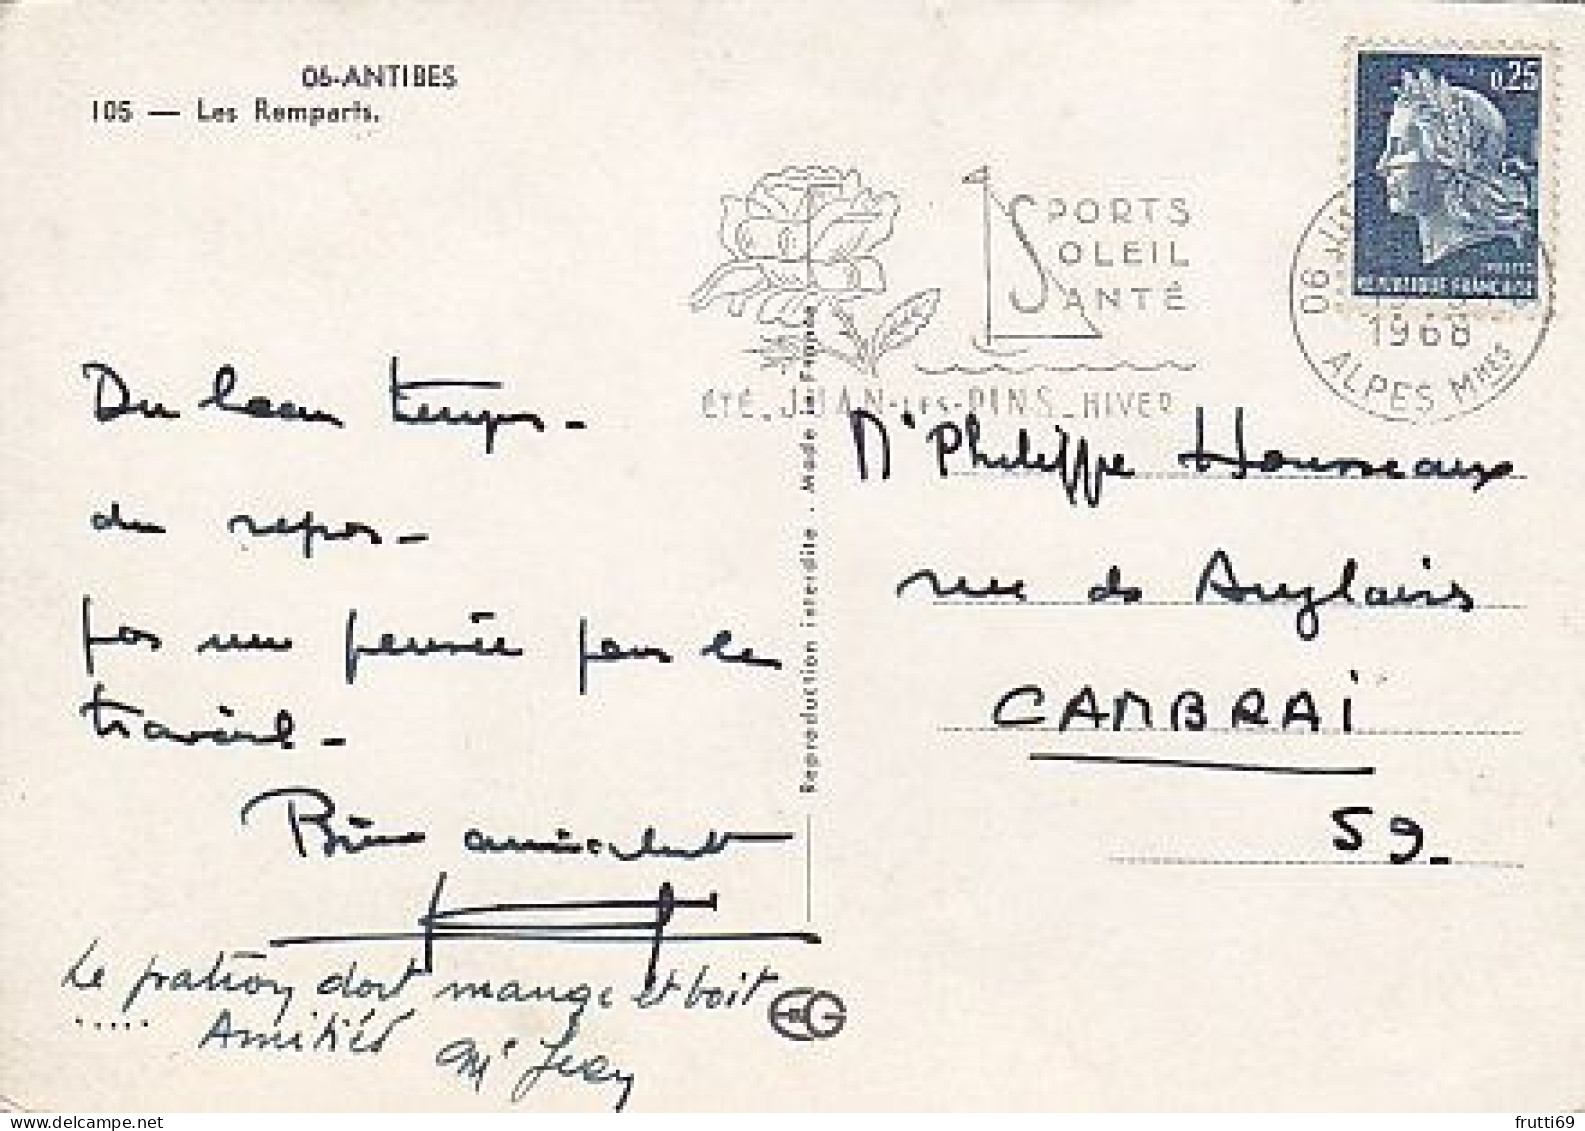 06-ANTIBES
105 — Les Remparts.
0,25
POSTES
REPUBLIQUE FRANÇAISE
SPORTS
SOLEIL
SANTÉ
ÉTÉ - JUAN-LES-PINS - HIVER
06
1968
ALPES Mmes
Du beau temps -
du repos -
pas une pensée pour le
travail -
Bien amicalement
Le patron dort mange et boit
..... Amitiés
Reproduction interdite - Made in France
Mr Philippe Housseaux
rue des Anglais
CAMBRAI
59 -
frutti69